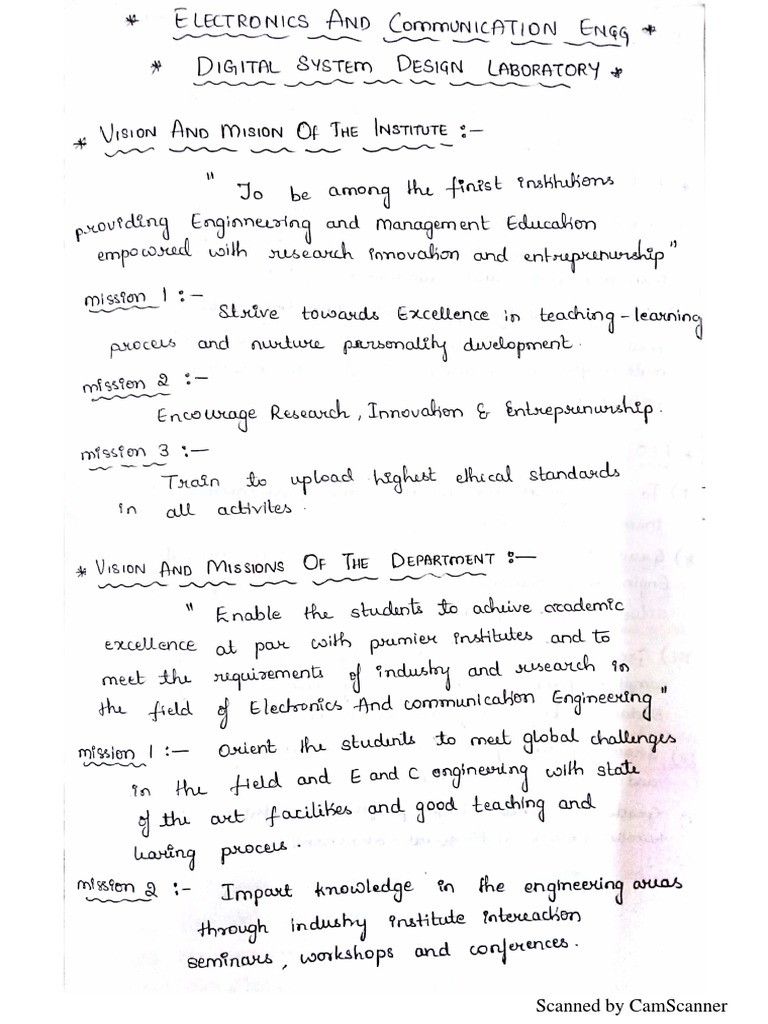 * ELECTRONICS AND COMMUNICATION ENGG *
* DIGITAL SYSTEM DESIGN LABORATORY *
* VISION AND MISION OF THE INSTITUTE :-
" To be among the finist institutions
providing Enginneering and Management Education
empowred with research innovation and entreprenurship"
mission 1 :-
Strive towards Excellence in teaching-learning
process and nurture personality development.
mission 2 :-
Encourage Research, Innovation & Entreprenurship.
mission 3 :-
Train to upload highest ethical standards
in all activites.
* VISION AND MISSIONS OF THE DEPARTMENT :-
" Enable the students to acheive academic
excellence at par with premier institutes and to
meet the requirements of industry and research in
the field of Electronics And communication Engineering"
mission 1 :- Orient the students to meet global challenges
in the field and E and C engineering with state
of the art facilities and good teaching and
learing process.
mission 2 :- Impart knowledge in the engineering areas
through industry institute intereaction
seminars, workshops and conferences.
Scanned by CamScanner